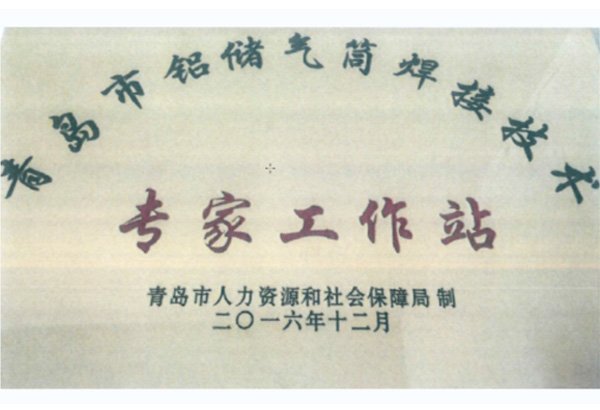 青岛市铝储气筒焊接技术
专家工作站
青岛市人力资源和社会保障局 制
二〇一六年十二月